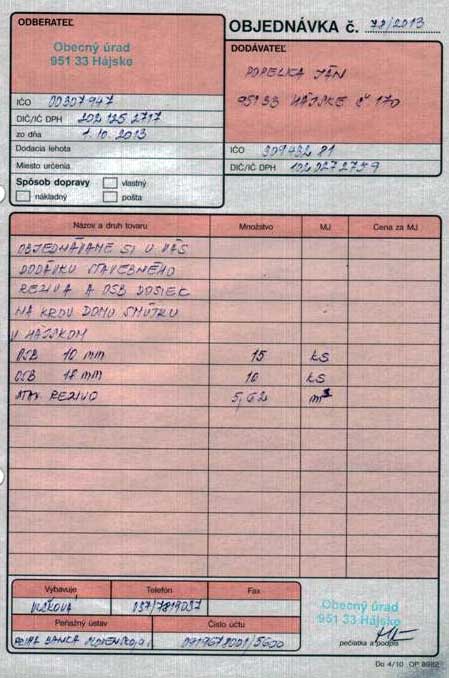 ODBERATEĽ
Obecný úrad
951 33 Hájske
IČO 00307947
DIČ/IČ DPH 202 125 2717
zo dňa 1. 10. 2013
Dodacia lehota
Miesto určenia
Spôsob dopravy
vlastný
nákladný
pošta
OBJEDNÁVKA č. 78/2013
DODÁVATEĽ
POPELKA JÁN
951 33 HÁJSKE č 170
IČO
DIČ/IČ DPH 1020272759
Názov a druh tovaru Množstvo MJ Cena za MJ
OBJEDNÁVAME SI U VÁS
DODÁVKU STAVEBNÉHO
REZIVA A OSB DOSIEK
NA KROV DOMU SMÚTKU
V HÁJSKOM
OSB 10 mm 15 KS
OSB 18 mm 10 KS
STAV. REZIVO 5,62 m3
Vybavuje Telefón Fax
VLČKOVÁ 037/7819037
Peňažný ústav Číslo účtu
BANKA SLOVENSKO 5600
Obecný úrad
951 33 Hájske
pečiatka a podpis
Do 4/10 OP 8982